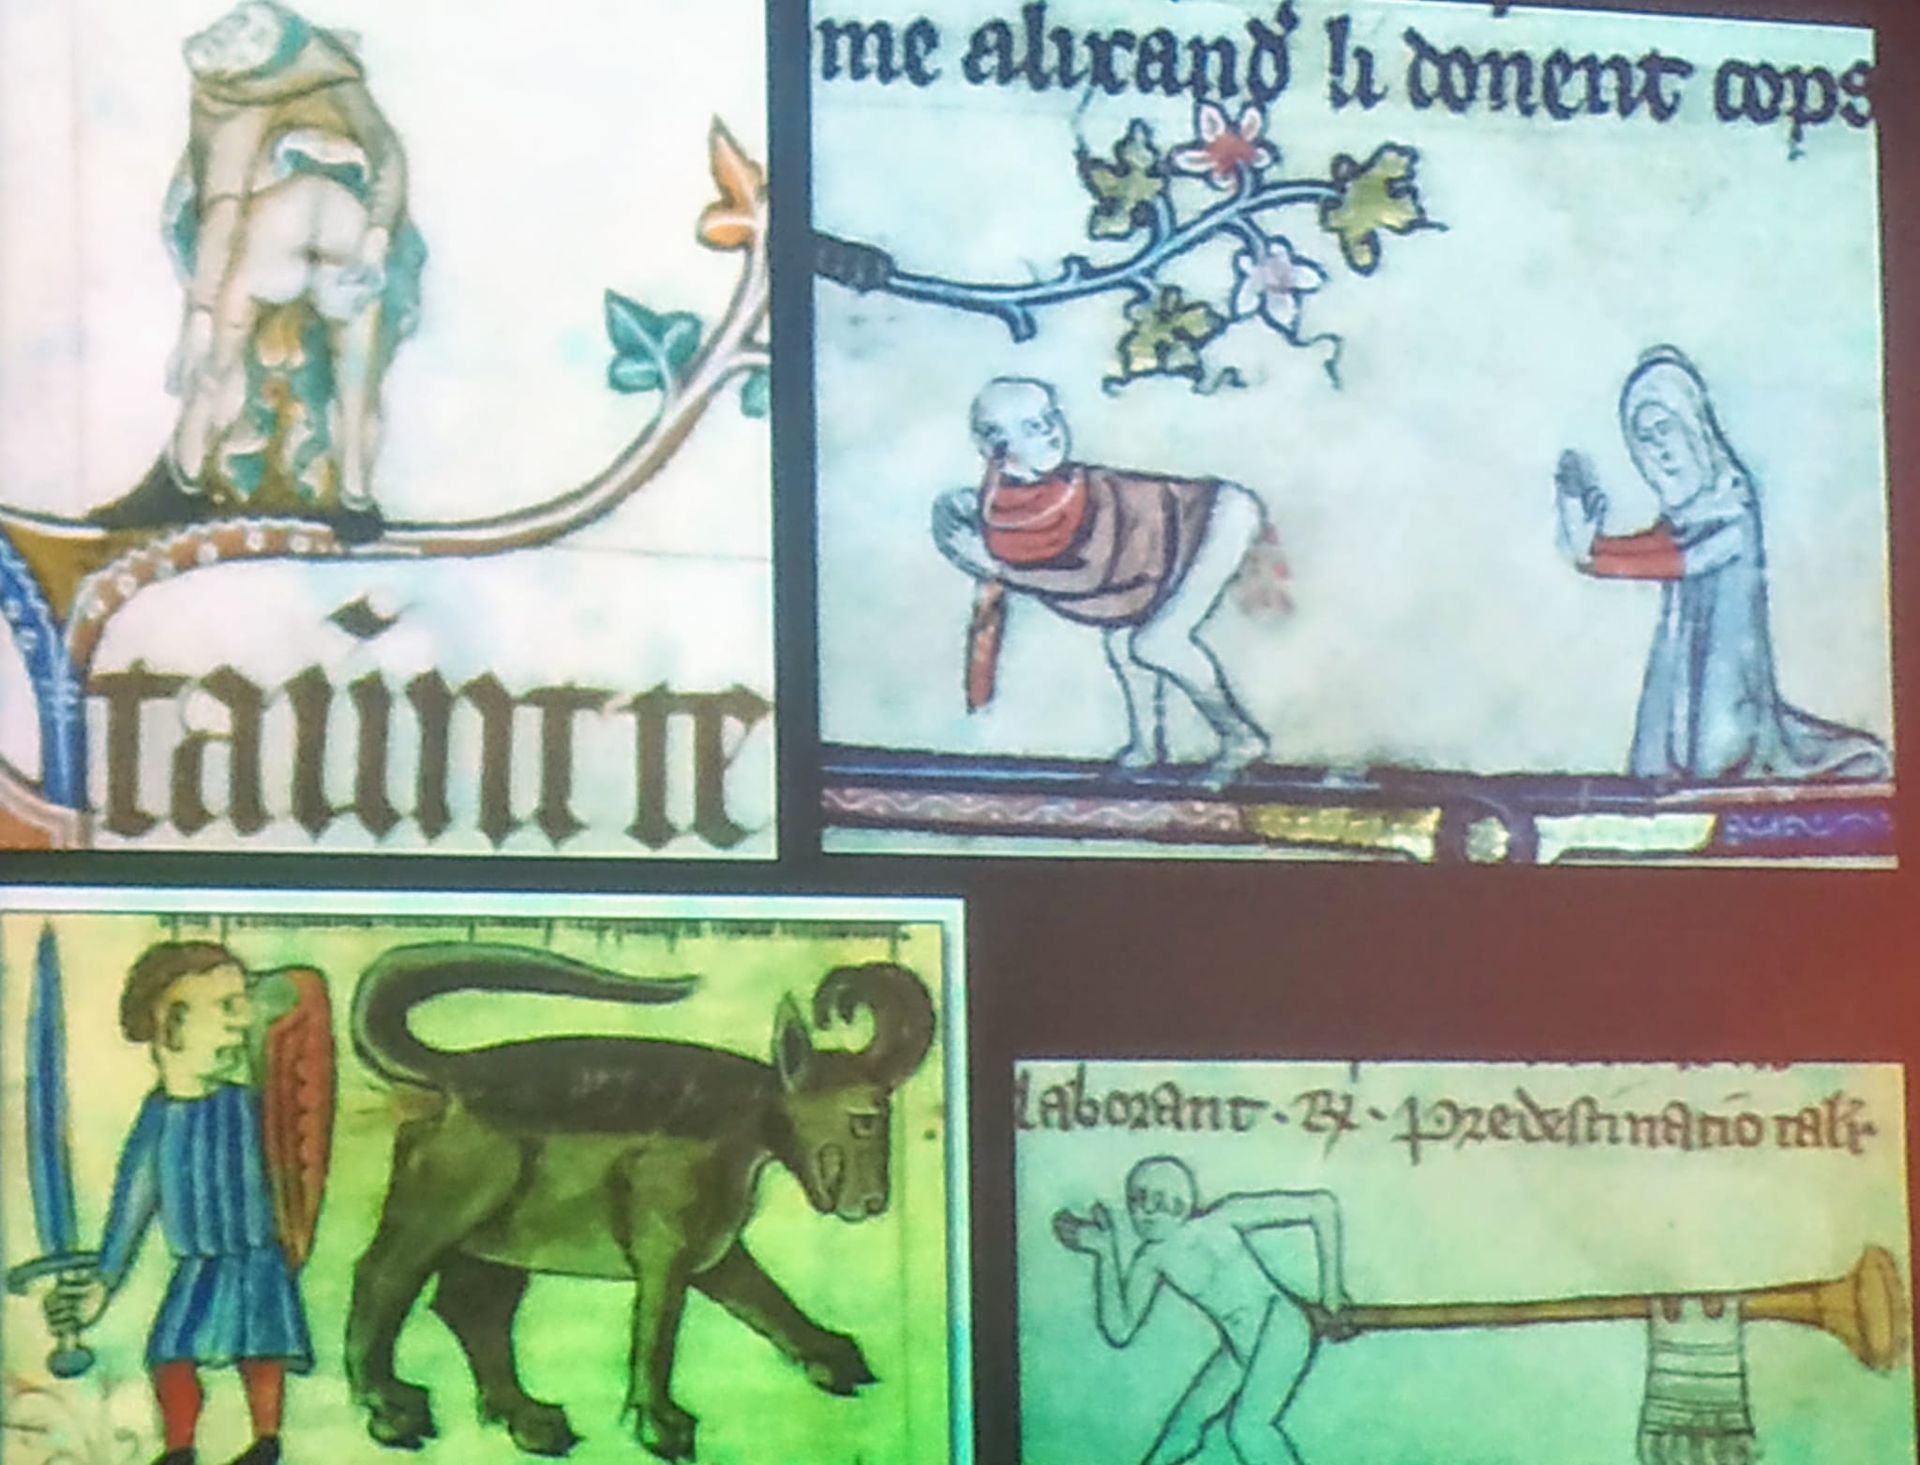 me alixand' li donent cops
taunt te
laborant · R · predestinatio